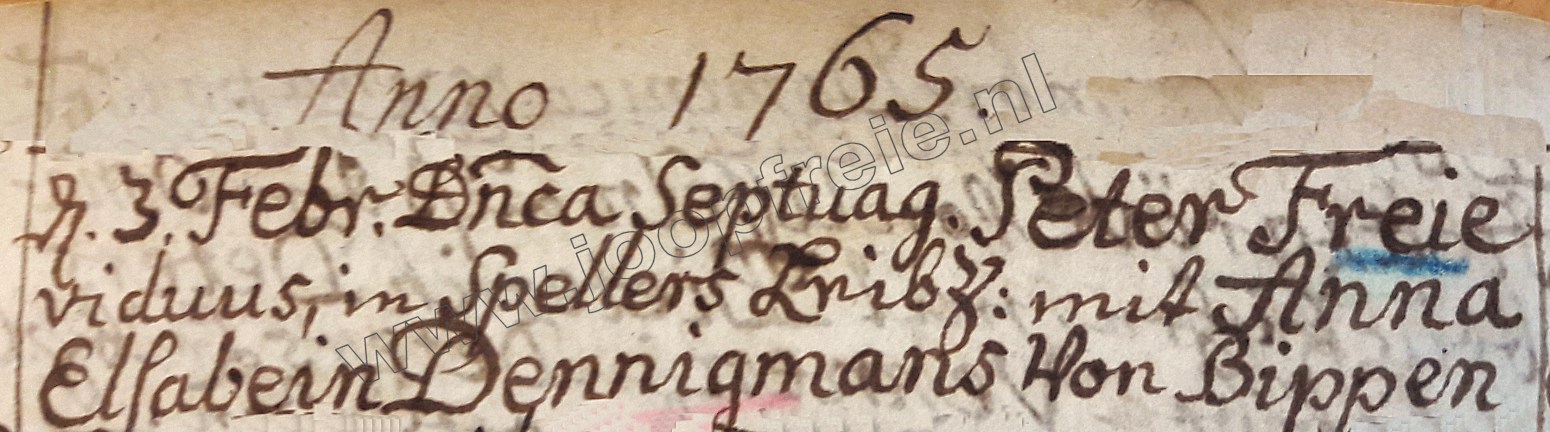 Anno 1765.
d. 3. Febr. Dn̄ca Septuag. Peter Freie
viduus, in Spellers mit Anna
Elsabein Dennigmans Von Bippen
www.joopfreie.nl